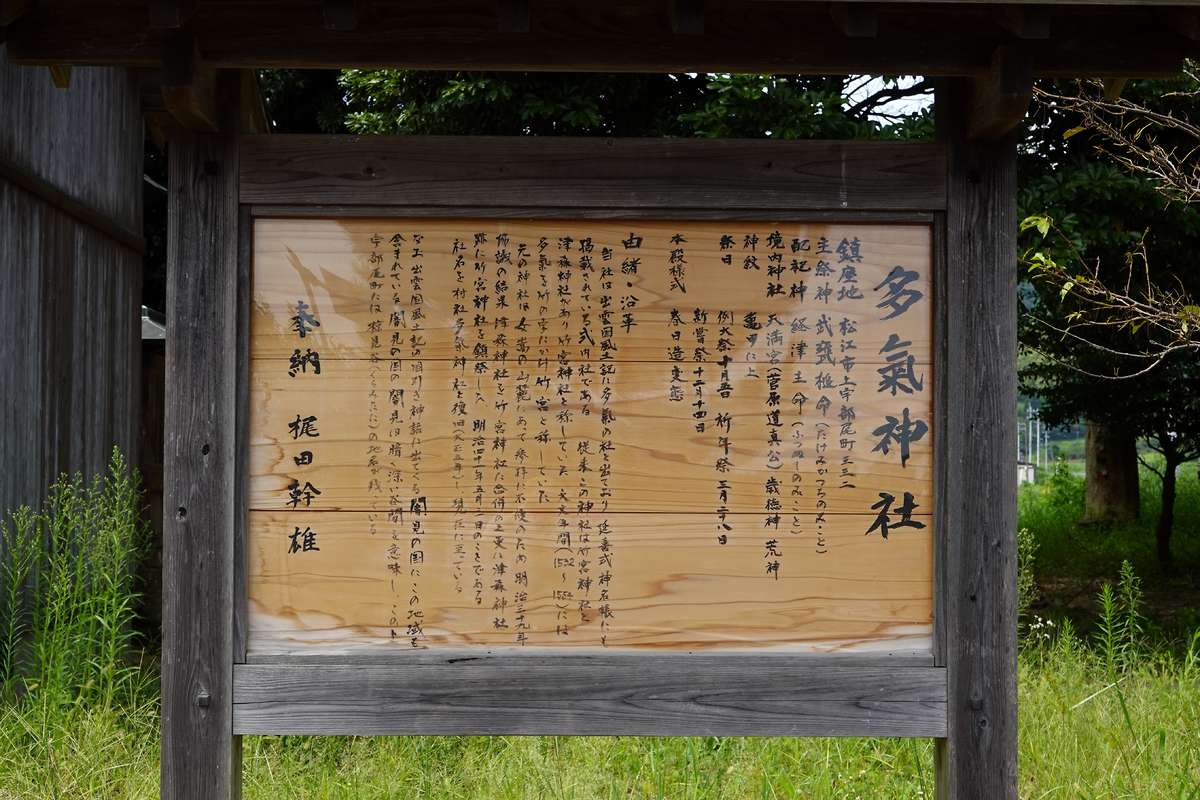 多氣神社
鎮座地　松江市上宇部尾町三三二
主祭神　武甕槌命（たけみかづちのみこと）
配祀神　経津主命（ふつぬしのみこと）
境内神社　天満宮（菅原道真公）歳徳神　荒神
神紋　亀甲に上
祭日　例大祭十月　祈年祭三月二十八日
新嘗祭十二月十四日
本殿様式　春日造変態
由緒・沿革
当社は出雲国風土記に多氣の社と出ており　延喜式神名帳にも
搭載されている式内社である　従来この神社は竹宮神社と
津森神社があり竹宮神社と称していた　天文年間（1532～1554）には
多氣を竹の字だけ竹宮と称していた
元の神社は　嵩の山麓にあって参拝に不便のため　明治三十九年
協議の結果　津森神社を竹宮神社に合併の上更に津森神社
跡に竹宮神社を鎮祭した　明治四十一年五月二日のことである
社名を村社多氣神社と復旧（大正三年）し　現在に至っている
なお　出雲国風土記の国引き神話に出てくる闇見の国にこの地域も
含まれている　闇見の国の闇見は暗い深い谷間を意味し、この上
宇部尾町には椋見谷（くらみだに）の地名が残っている
奉納　梶田幹雄